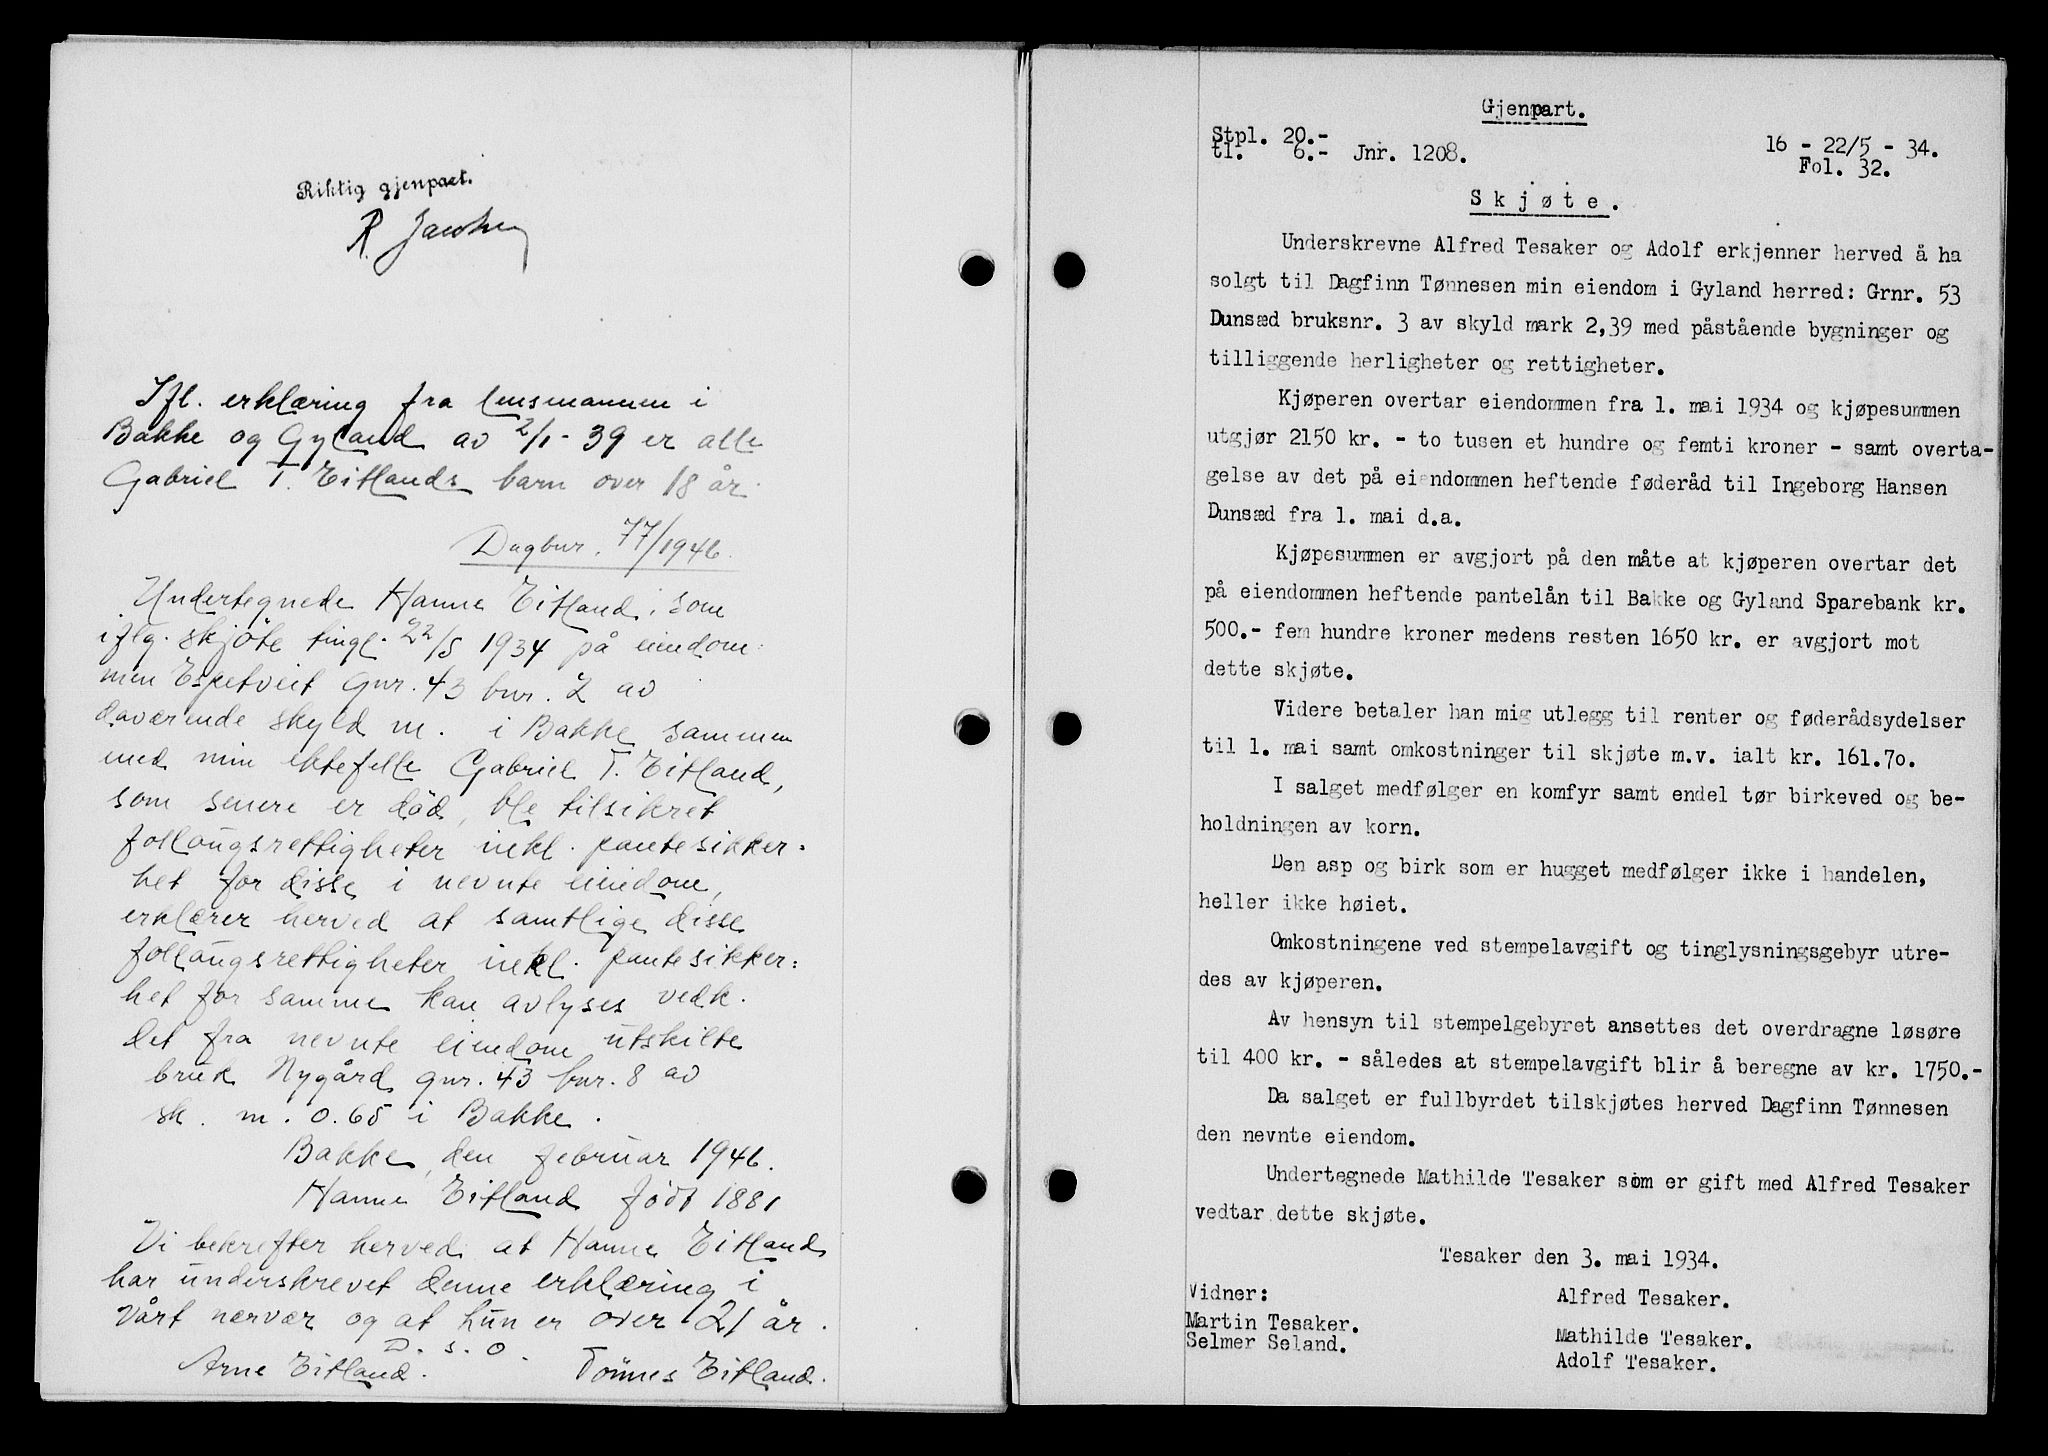 Riktig gjenpart.
R. 
Ifl. erklæring fra lensmannen i
Bakke og Gyland av 2/1-39 er alle
Gabriel T. Eitlands barn over 18 år.
Dagbnr. 77/1946.
Undertegnede Hanne Eitland, som
iflg. skjöte tingl. 22/5 1934 på eiendom-
men Espetveit gnr. 43 bnr. 2 av
daværende skyld m. i Bakke sammen
med min ektefelle Gabriel T. Eitland,
som senere er död, ble tilsikret
follaugsrettigheter inkl. pantesikker=
het for disse i nevnte eiendom,
erklærer herved at samtlige disse
follaugsrettigheter inkl. pantesikker=
het for samme kan avlyses vedk.
det fra nevnte eiendom utskilte
bruk Nygård gnr. 43 bnr. 8 av
sk. m. 0.65 i Bakke.
Bakke, den februar 1946.
Hanne Eitland födt 1881
Vi bekrefter herved at Hanne Eitland
har underskrevet denne erklæring i
vårt nærvær og at hun er over 21 år.
D. s. o.
Arne Eitland. Tönnes Eitland.
Gjenpart.
Stpl. 20.-
tl. 6.- Jnr. 1208. 16 - 22/5 - 34.
Fol. 32.
Skjøte.
Underskrevne Alfred Tesaker og Adolf erkjenner herved å ha
solgt til Dagfinn Tønnesen min eiendom i Gyland herred: Grnr. 53
Dunsæd bruksnr. 3 av skyld mark 2,39 med påstående bygninger og
tilliggende herligheter og rettigheter.
Kjøperen overtar eiendommen fra 1. mai 1934 og kjøpesummen
utgjør 2150 kr. - to tusen et hundre og femti kroner - samt overta-
gelse av det på eiendommen heftende føderåd til Ingeborg Hansen
Dunsæd fra 1. mai d.a.
Kjøpesummen er avgjort på den måte at kjøperen overtar det
på eiendommen heftende pantelån til Bakke og Gyland Sparebank kr.
500.- fem hundre kroner medens resten 1650 kr. er avgjort mot
dette skjøte.
Videre betaler han mig utlegg til renter og føderådsydelser
til 1. mai samt omkostninger til skjøte m.v. ialt kr. 161.70.
I salget medfølger en komfyr samt endel tør birkeved og be-
holdningen av korn.
Den asp og birk som er hugget medfølger ikke i handelen,
heller ikke høiet.
Omkostningene ved stempelavgift og tinglysningsgebyr utre-
des av kjøperen.
Av hensyn til stempelgebyret ansettes det overdragne løsøre
til 400 kr. - således at stempelavgift blir å beregne av kr. 1750.-
Da salget er fullbyrdet tilskjøtes herved Dagfinn Tønnesen
den nevnte eiendom.
Undertegnede Mathilde Tesaker som er gift med Alfred Tesaker
vedtar dette skjøte.
Tesaker den 3. mai 1934.
Vidner: Alfred Tesaker.
Martin Tesaker. Mathilde Tesaker.
Selmer Seland. Adolf Tesaker.